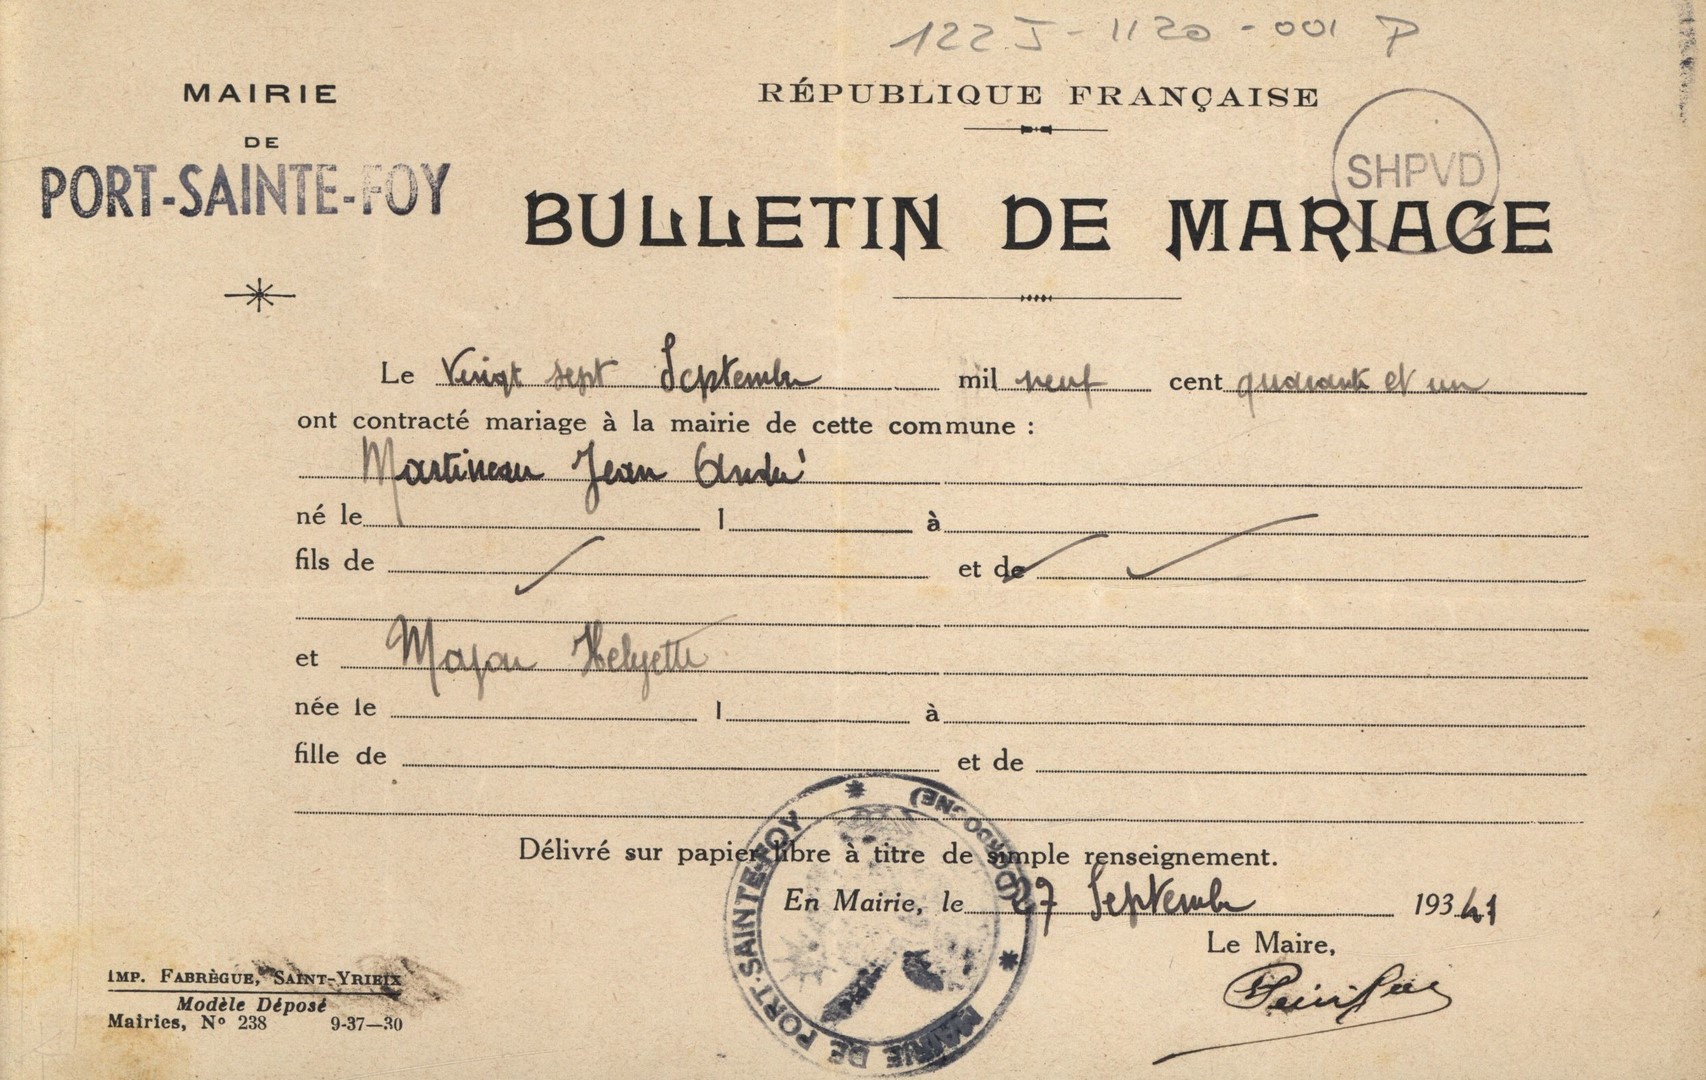 122 J - 1120 - 001 P
MAIRIE
DE
PORT-SAINTE-FOY
RÉPUBLIQUE FRANÇAISE
SHPVD
BULLETIN DE MARIAGE
Le Vingt sept Septembre mil neuf cent quarante et un
ont contracté mariage à la mairie de cette commune :
Martineau Jean André
né le 1 à
fils de et de
et Helyette
née le 1 à
fille de et de
MAIRIE DE PORT-SAINTE-FOY (DORDOGNE)
Délivré sur papier libre à titre de simple renseignement.
En Mairie, le 27 Septembre 193 41
Le Maire,
IMP. FABRÈGUE, SAINT-YRIEIX
Modèle Déposé
Mairies, N° 238 9-37—30